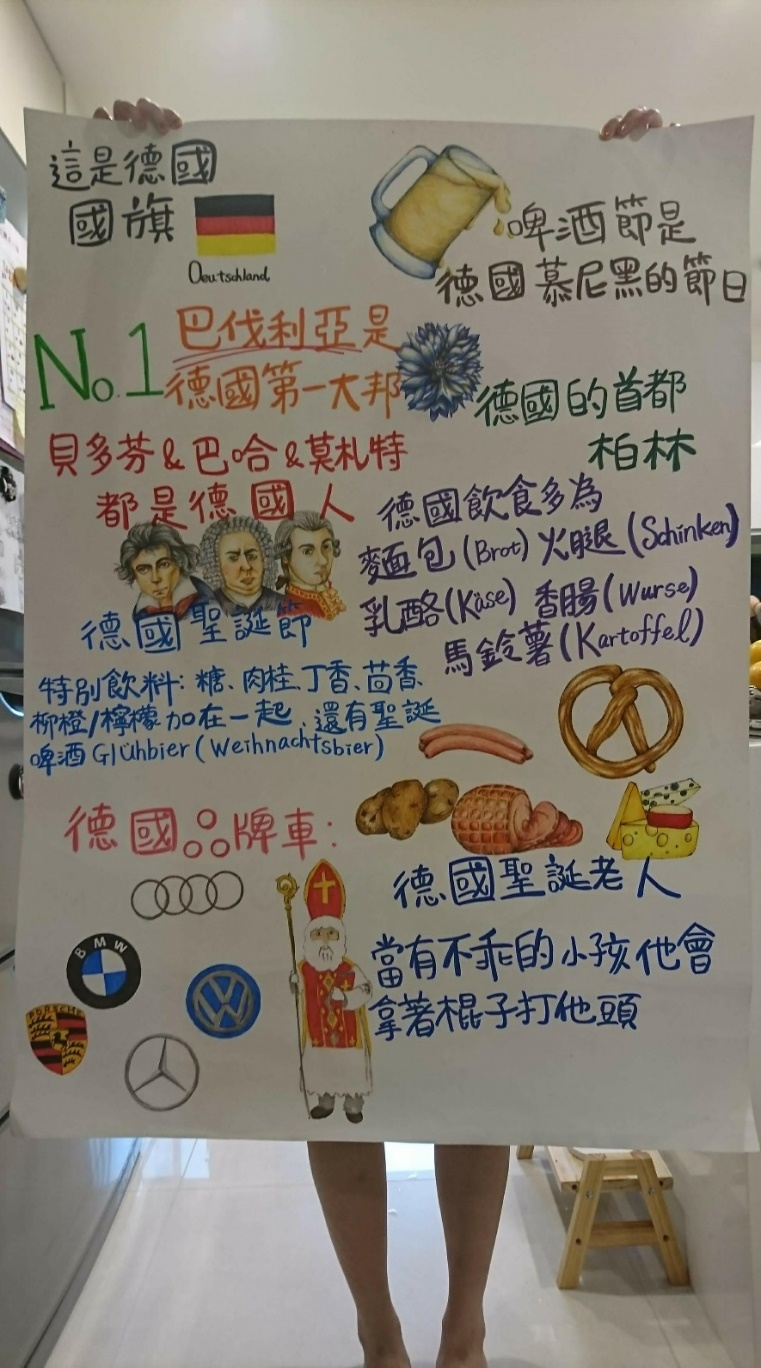 這是德國
國旗
Deutschland
啤酒節是
德國慕尼黑的節日
No.1
巴伐利亞是
德國第一大邦
德國的首都
柏林
貝多芬&巴哈&莫札特
都是德國人
德國飲食多為
麵包(Brot)火腿(Schinken)
乳酪(Käse)香腸(Wurse)
馬鈴薯(Kartoffel)
德國聖誕節
特別飲料:糖、肉桂、丁香、茴香、
柳橙/檸檬加在一起、還有聖誕
啤酒Glühbier(Weihnachtsbier)
德國品牌車:
BMW
PORSCHE
VW
德國聖誕老人
當有不乖的小孩他會
拿著棍子打他頭